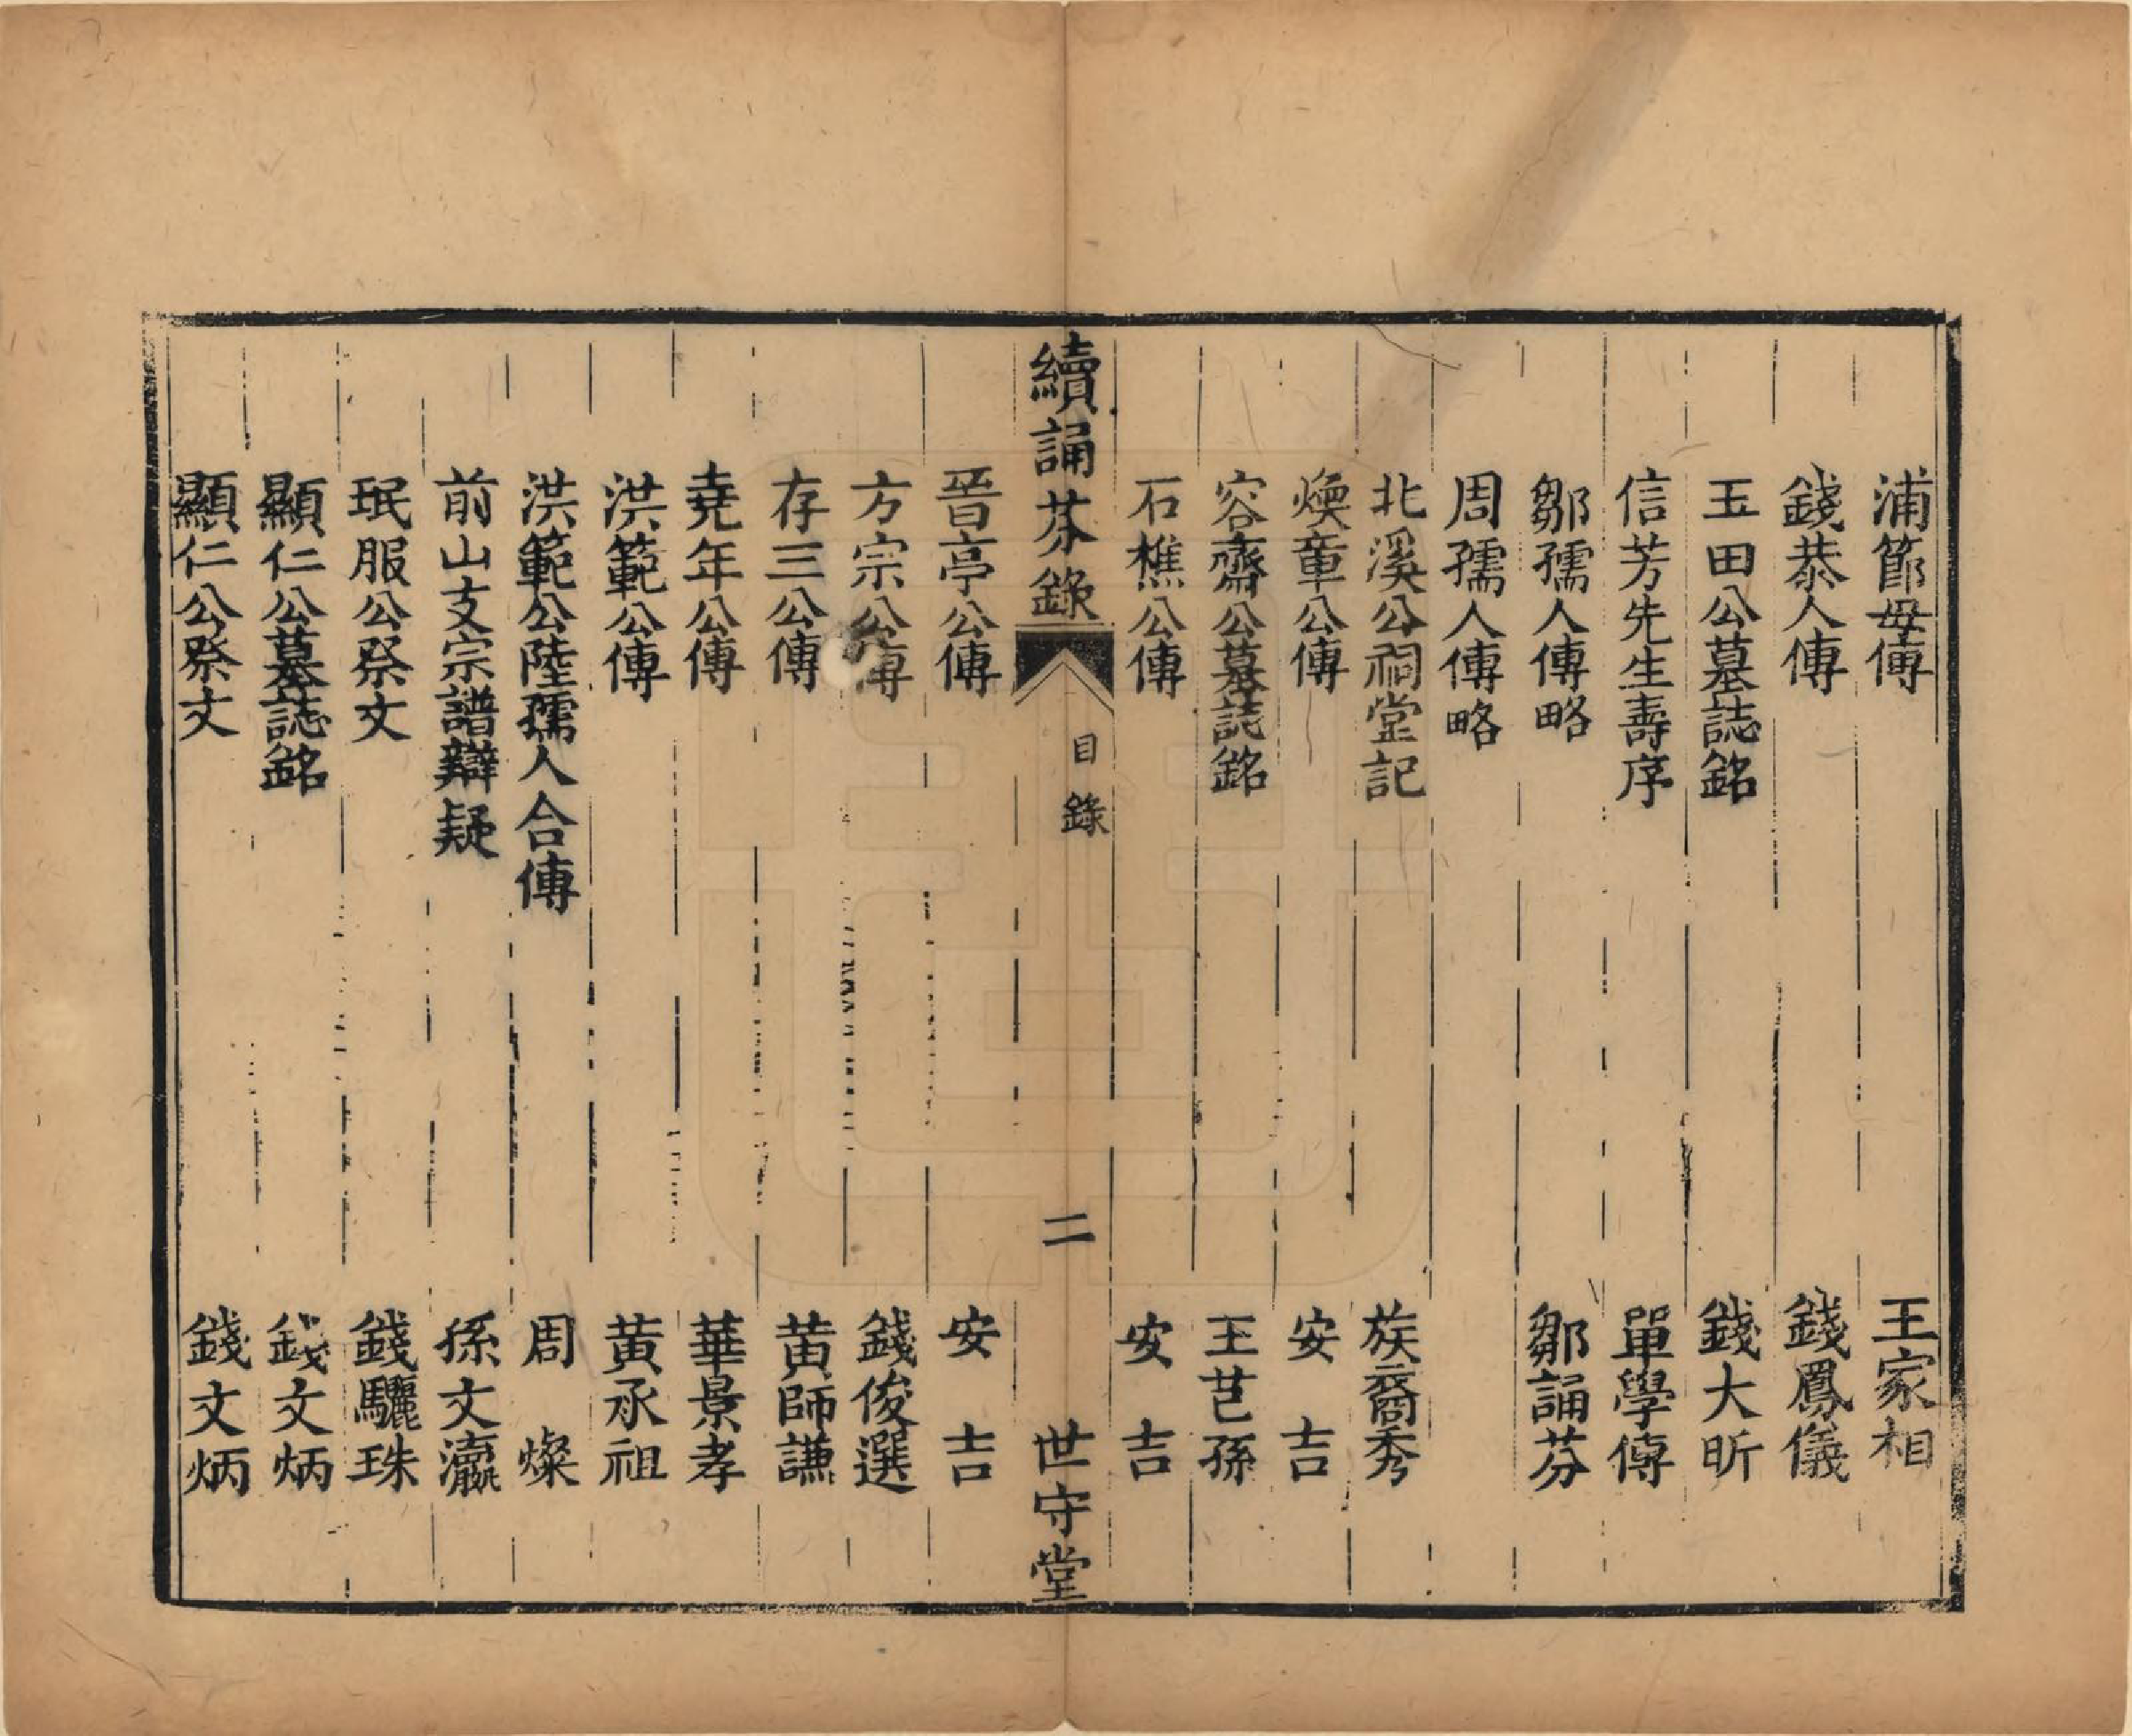 浦節母傳 王家相
錢恭人傳 錢鳳儀
玉田公墓誌銘 錢大昕
信芳先生壽序 單學傅
鄒孺人傳略 鄒誦芬
周孺人傳略
北溪公祠堂記 族裔秀
煥章公傳 安吉
容齋公墓誌銘 王芑孫
石樵公傳 安吉
續誦芬錄 目錄 二 世守堂
晉亭公傳 安吉
方宗公傳 錢俊選
存三公傳 黃師謙
堯年公傳 華景孝
洪範公傳 黃承祖
洪範公陸孺人合傳 周燦
前山支宗譜辯疑 孫文瀛
珉服公祭文 錢驪珠
顯仁公墓誌銘 錢文炳
顯仁公祭文 錢文炳